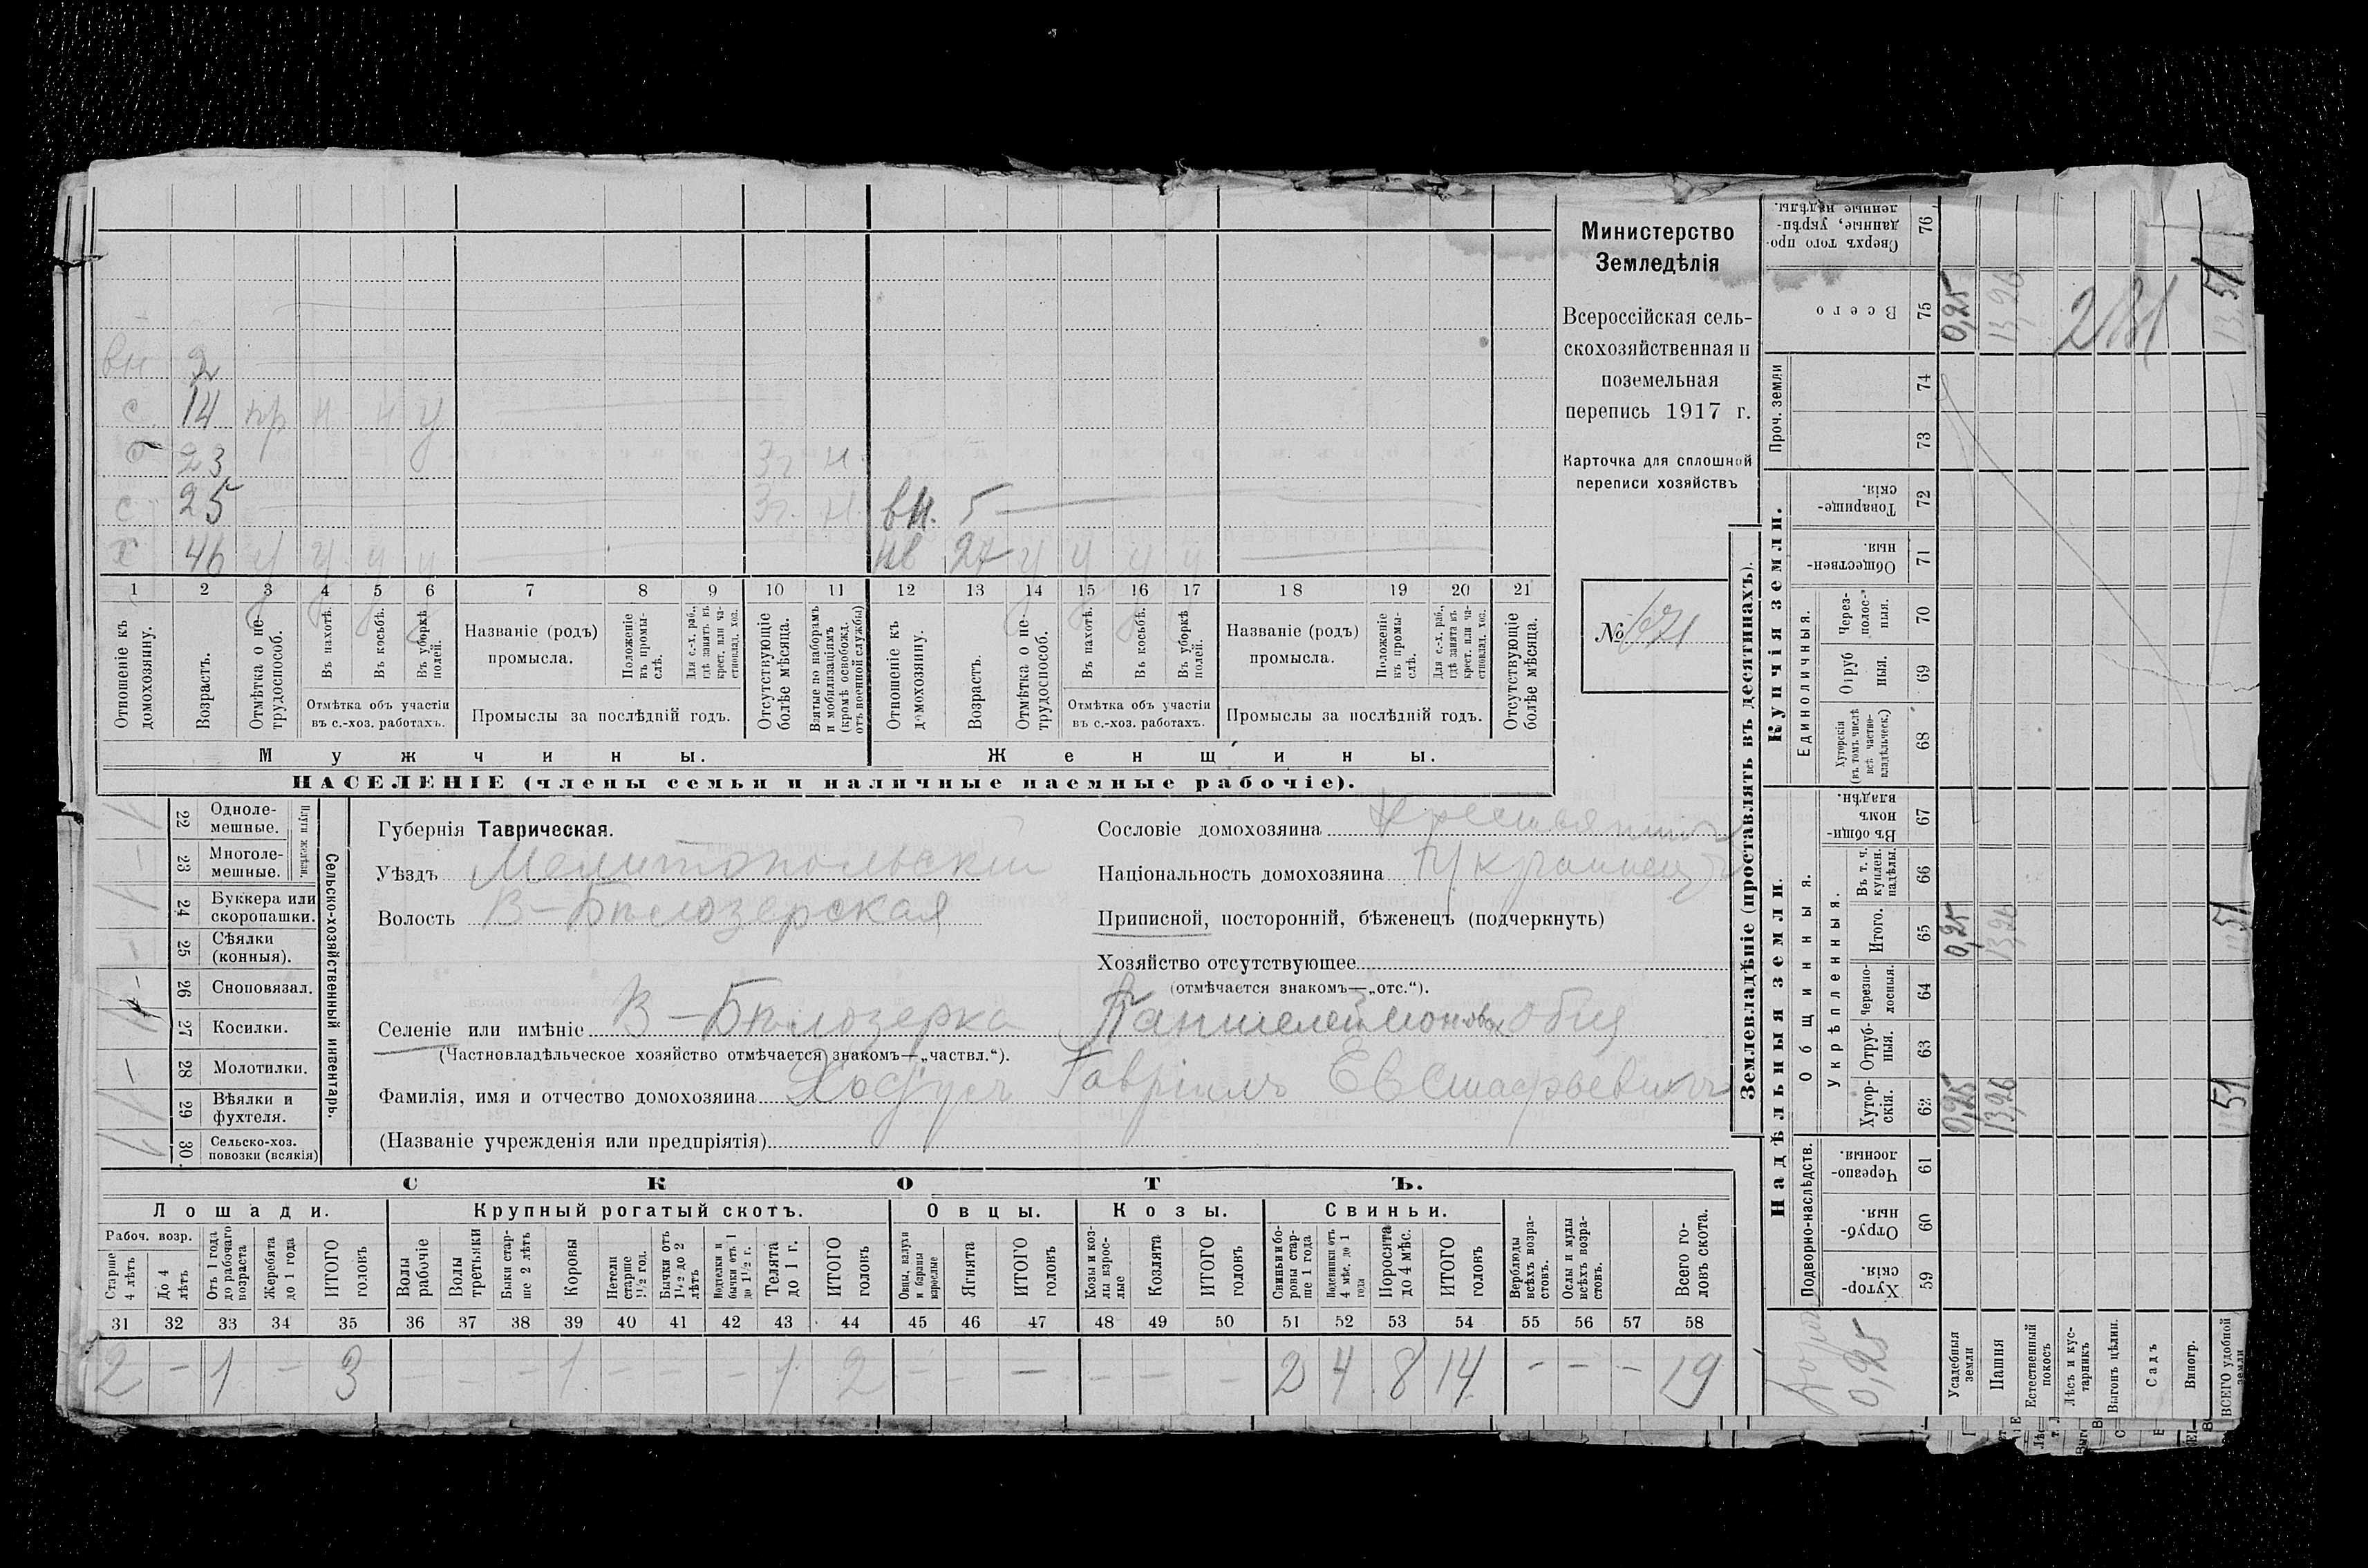 Министерство
Земледѣлія
Всероссійская сель-
скохозяйственная и
поземельная
перепись 1917 г.
Карточка для сплошной
переписи хозяйствъ
№ 671
вн 2
с 14 нр н н у
б 23 3 г. н.
с 25 3 г. н. вн. 5
х 46 у у у у нв 27 у у у у
1 2 3 4 5 6 7 8 9 10 11 12 13 14 15 16 17 18 19 20 21
Отношеніе къ домохозяину.
Возрастъ.
Отмѣтка о нетрудоспособ.
Въ пахотѣ.
Въ косьбѣ.
Въ уборкѣ полей.
Отмѣтка объ участіи
въ с.-хоз. работахъ.
Названіе (родъ)
промысла.
Положеніе въ промыслѣ.
Для с.-х. раб., гдѣ занятъ въ крест. или частновлад. хоз.
Промыслы за послѣдній годъ.
Отсутствующіе болѣе мѣсяца.
Взятые по наборамъ и мобилизаціямъ (кромѣ освобожд. отъ военной службы)
Отношеніе къ домохозяину.
Возрастъ.
Отмѣтка о нетрудоспособ.
Въ пахотѣ.
Въ косьбѣ.
Въ уборкѣ полей.
Отмѣтка объ участіи
въ с.-хоз. работахъ.
Названіе (родъ)
промысла.
Положеніе въ промыслѣ.
Для с.-х. раб., гдѣ занята въ крест. или частновлад. хоз.
Промыслы за послѣдній годъ.
Отсутствующіе болѣе мѣсяца.
Мужчины. Женщины.
НАСЕЛЕНІЕ (члены семьи и наличные наемные рабочіе).
Сельско-хозяйственный инвентарь.
Плуги желѣзн.
22 Одноле-
мешные.
23 Многоле-
мешные.
24 Буккера или
скоропашки.
25 Сѣялки
(конныя).
26 Сноповязал.
27 Косилки.
28 Молотилки.
29 Вѣялки и
фухтеля.
30. Сельско-хоз.
повозки (всякія)
Губернія Таврическая.
Уѣздъ Мелитопольскій
Волость В-Бѣлозерская
Селеніе или имѣніе В-Бѣлозерка
(Частновладѣльческое хозяйство отмѣчается знакомъ—„частвл.“).
Фамилія, имя и отчество домохозяина Гавріилъ Евстафьевичъ
(Названіе учрежденія или предпріятія)
Сословіе домохозяина крестьянинъ
Національность домохозяина Украинецъ
Приписной, посторонній, бѣженецъ (подчеркнуть)
Хозяйство отсутствующее
(отмѣчается знакомъ—„отс.“).
СКОТЪ.
Лошади. Крупный рогатый скотъ. Овцы. Козы. Свиньи.
Рабоч. возр.
Старше 4 лѣтъ
До 4 лѣтъ
Отъ 1 года до рабочаго возраста
Жеребята до 1 года
ИТОГО головъ
Волы рабочіе
Волы третьяки
Быки старше 2 лѣтъ
Коровы
Нетели старше 1½ год.
Бычки отъ 1½ до 2 лѣтъ
Подтелки и бычки отъ 1 до 1½ г.
Телята до 1 г.
ИТОГО головъ
Овцы, валухи и бараны взрослые
Ягнята
ИТОГО головъ
Козы и козлы взрослые
Козлята
ИТОГО головъ
Свиньи и боровы старше 1 года
Подсвинки отъ 4 мѣс. до 1 года
Поросята до 4 мѣс.
ИТОГО головъ
Верблюды всѣхъ возрастовъ.
Ослы и мулы всѣхъ возрастовъ.
Всего головъ скота.
31 32 33 34 35 36 37 38 39 40 41 42 43 44 45 46 47 48 49 50 51 52 53 54 55 56 57 58
2 – 1 – 3 – – – 1 – – – 1 2 – – – – – – 2 4 8 14 – – – 19
Землевладѣніе (проставлять въ десятинахъ).
Купчія земли.
Надѣльныя земли.
Сверхъ того проданные, укрѣпленные надѣлы. 76
Всего 75 0,25 13,26 13 51
Проч. земли 74 73
Товарищескія. 72
Общественныя. 71
Единоличныя.
Черезполосныя. 70
Отрубныя. 69
Хуторскія (въ томъ числѣ всѣ частновладѣльческ.) 68
Общинныя.
Въ общинномъ владѣн. 67
Укрѣпленныя.
Въ т. ч. куплен. надѣлы. 66
Итого. 65 0,25 13,26 51
черезполосныя. 64
Отрубныя. 63
Хуторскія. 62 0,25 13,26 51
Подворно-наслѣдств.
Черезполосныя. 61
Отрубныя. 60
Хуторскія. 59
0,25
Усадебныя земли
Пашня
Естественный покосъ
Лѣсъ и кустарникъ
Выгонъ цѣлин.
Садъ
Виногр.
ВСЕГО удобной земли